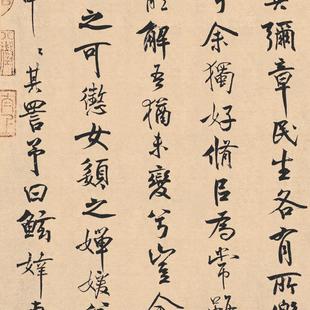 其彌章民生各有所樂
兮余獨好脩㠯為常雖
解吾猶未變兮豈余
之可懲女嬃之嬋媛
申〻其詈予曰鮌婞直